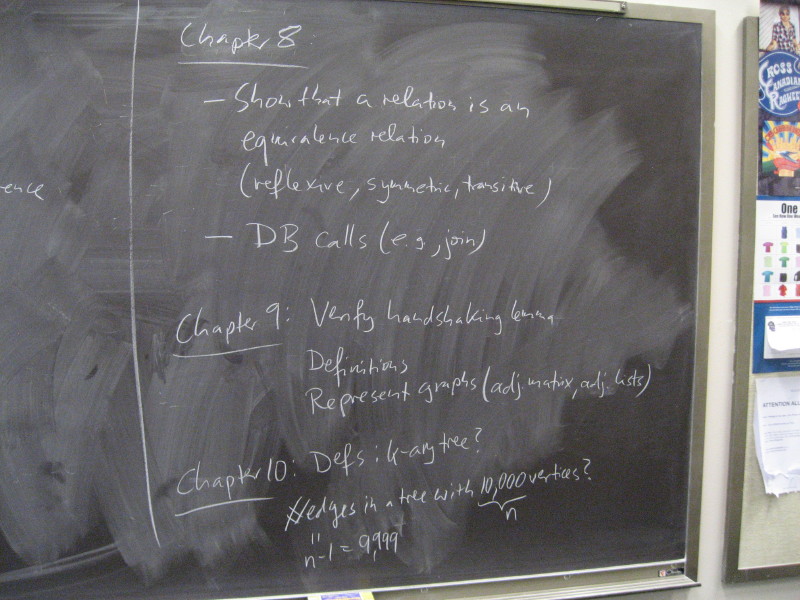 Chapter 8
– Show that a relation is an
equivalence relation
(reflexive, symmetric, transitive)
– DB calls (e.g., join)
Chapter 9: Verify handshaking lemma
Definitions
Represent graphs (adj. matrix, adj. lists)
Chapter 10: Defs: k-ary tree?
# edges in a tree with 10,000 vertices?
n
"
n-1 = 9,999
CROSS
CANADIAN
RAGWEED
One
ATTENTION ALL